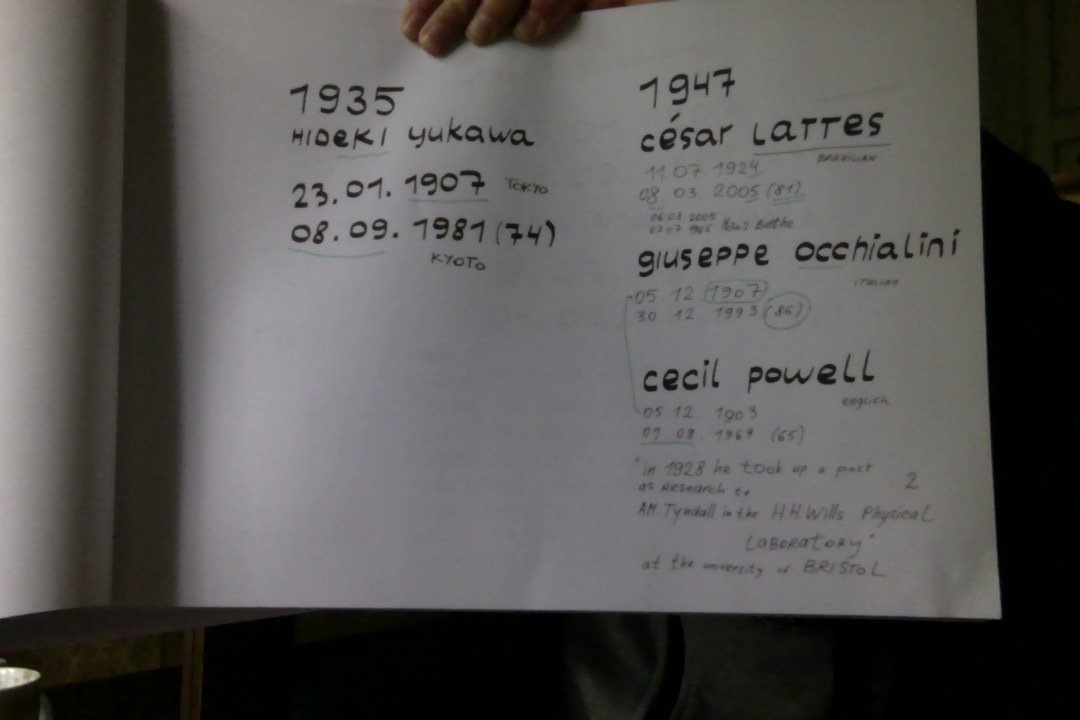 1935
HIDEKI yukawa
23.01.1907 TOKYO
08.09.1981 (74)
KYOTO
1947
césar LATTES
BRAZILIAN
11.07 1924
08 03 2005 (81)
06.03.2005
02.07.1906 Hans Bethe
giuseppe occhialini
ITALIAN
05 12 (1907)
30 12 1993 (86)
cecil powell
english
05 12. 1903
09 08. 1969 (65)
"in 1928 he took up a post
as Research to
AM. Tyndall in the H.H. Wills Physical
LABORATORY"
2
at the university of BRISTOL